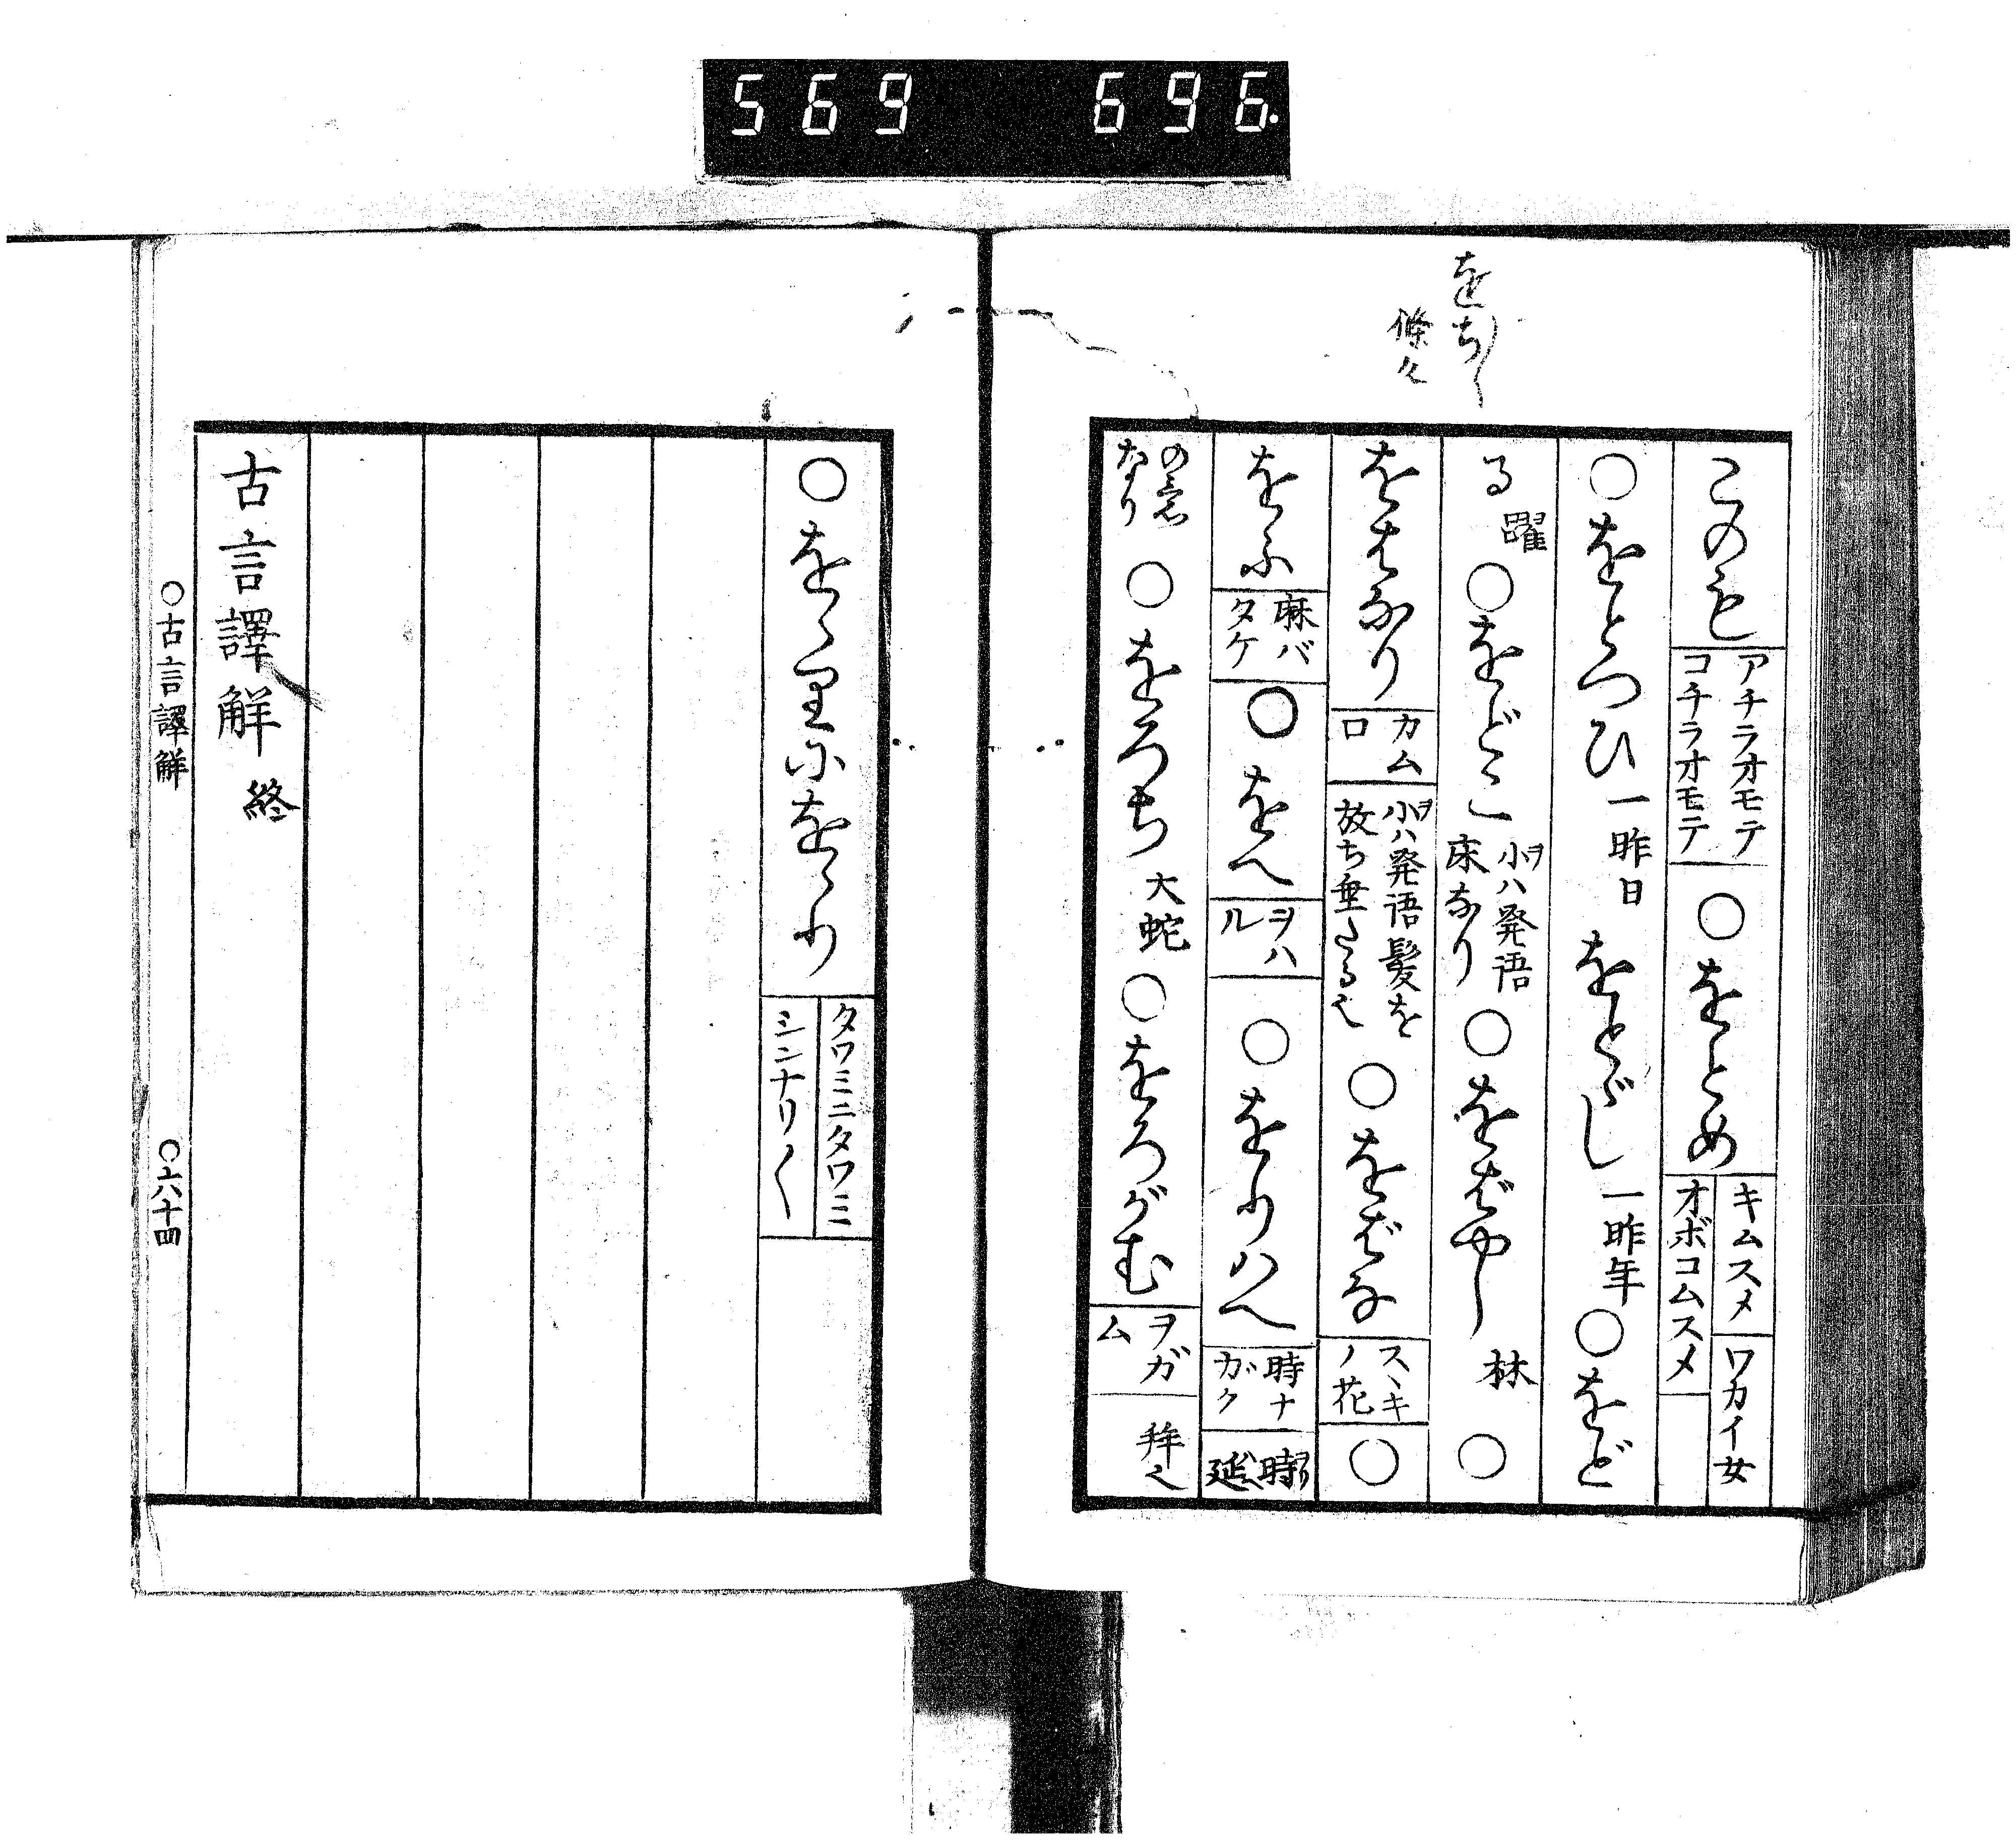 569 696.
をち〳〵
條々
このも アチラオモテ コチラオモテ ○をとめ キムスメ オボコムスメ ワカイ女
○をとつひ 一昨日 をとゞし 一昨年 ○をど
る 躍 ○をどこ 小ハ発語 床なり ○をばやし 林 ○
をはなり カムロ 小ハ発語髪を 放ち垂たる也 ○をばな スヽキノ花 ○
をふ 麻バタケ ○をへ ヲハル ○をりはへ 時ナガク 時延
の意なり ○をろち 大蛇 ○をろがむ ヲガム 拜也
○をゝりにをゝり タワミニタワミ シンナリ〳〵
古言譯解 終
○古言譯解 ○六十四